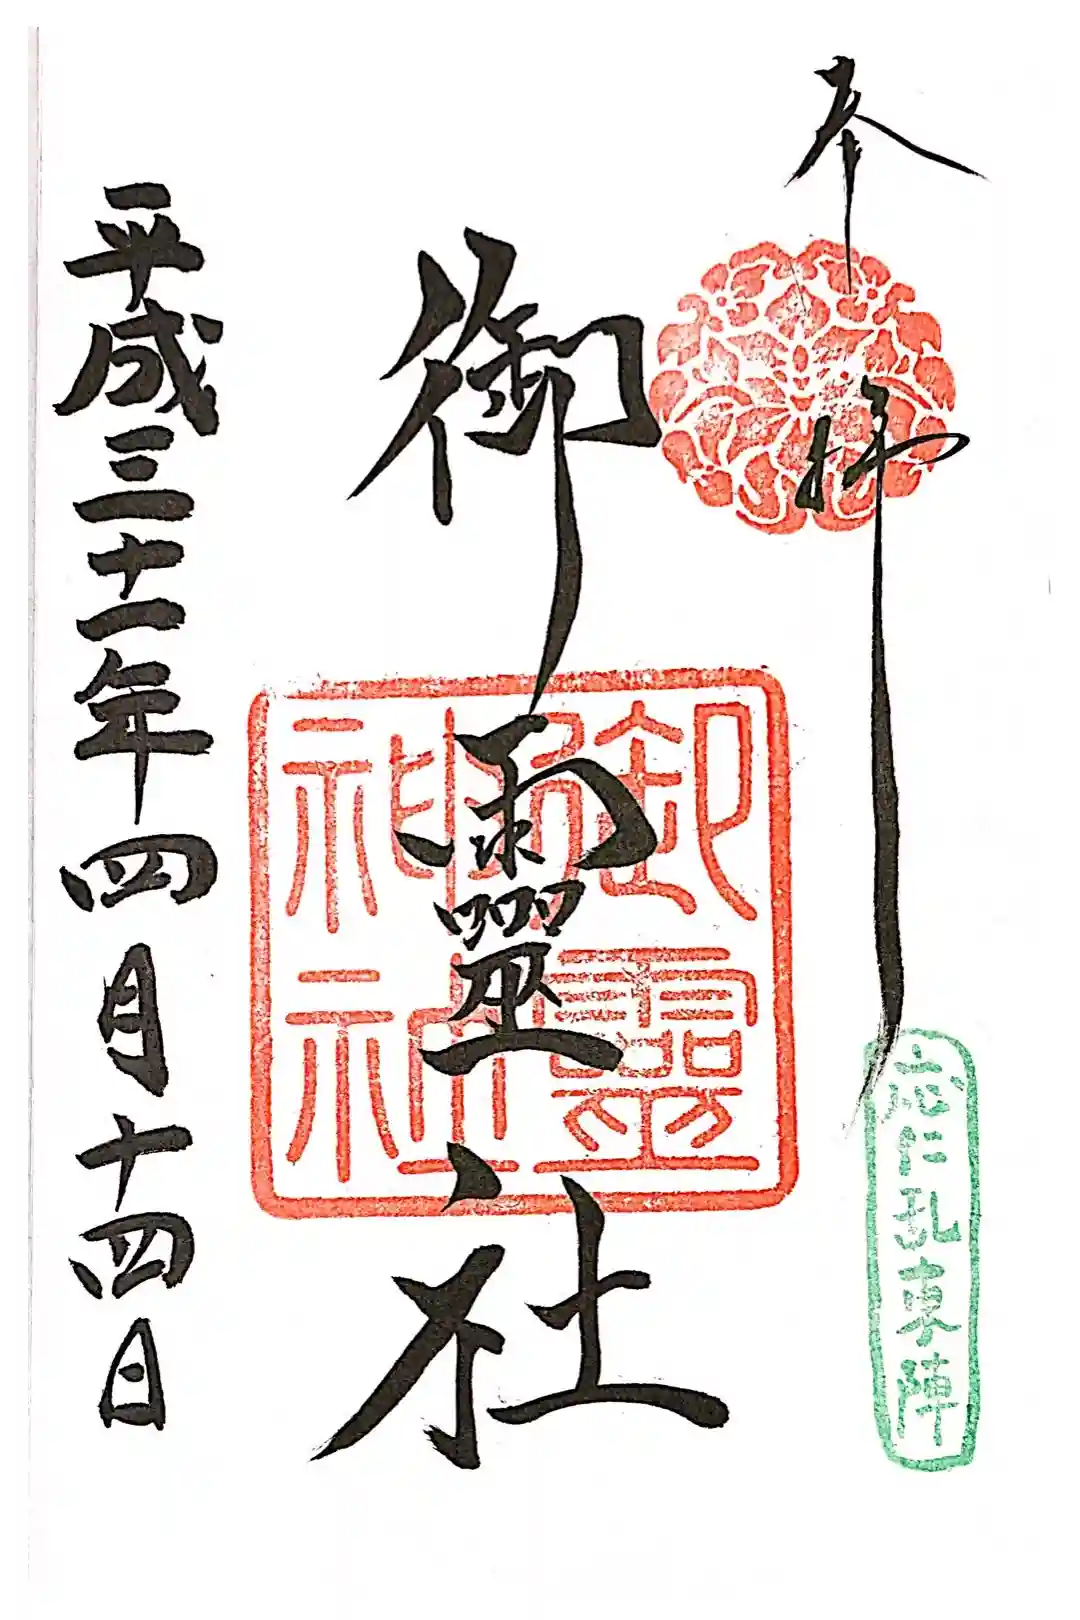 奉拝
應仁乱東陣
御靈社
御靈神社
平成三十一年四月十四日